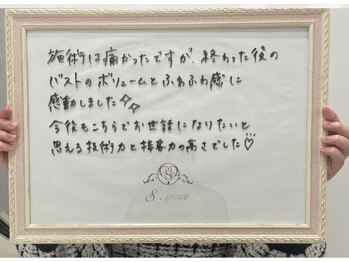 施術は痛かったですが、終わった後の
バストのボリュームとふわふわ感に
感動しました✧✧
今後もこちらでお世話になりたいと
思える技術力と接客力の高さでした♡
S.grace